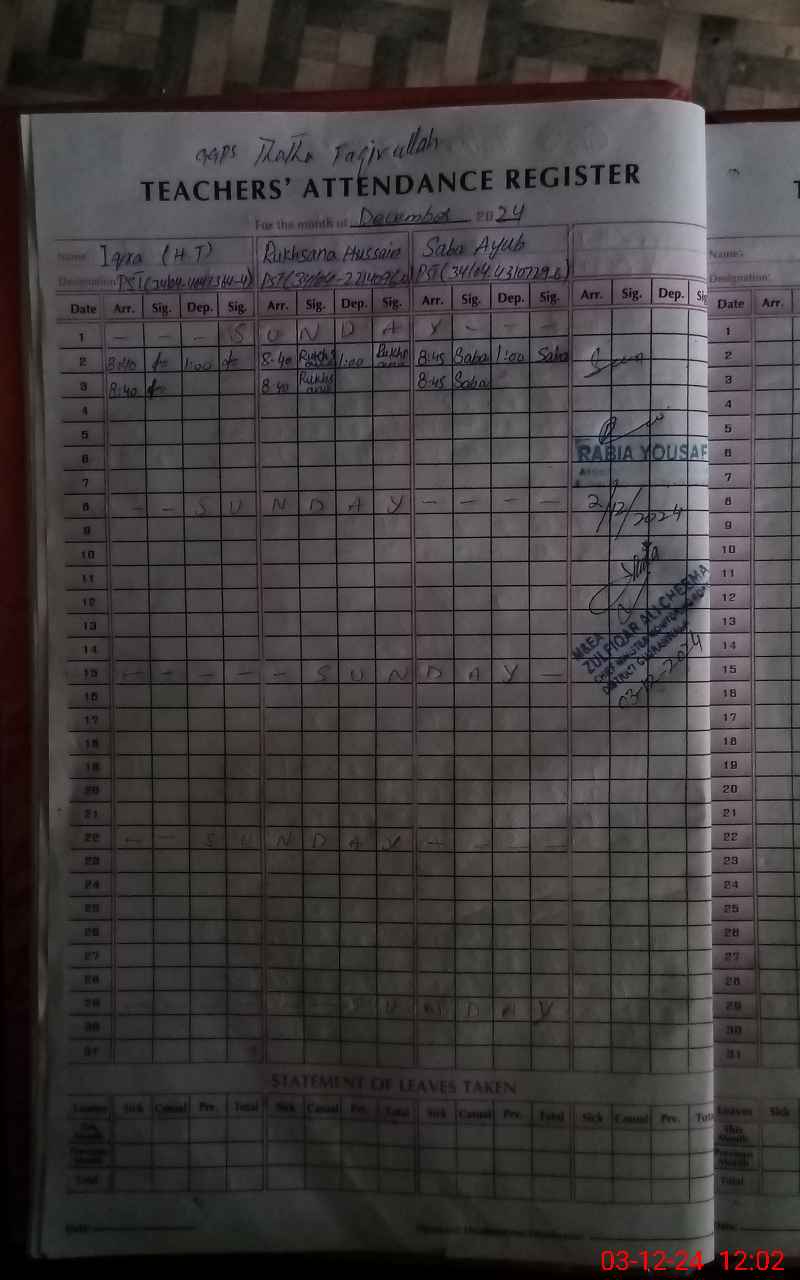 GGPS Thatha Faqirullah
TEACHERS' ATTENDANCE REGISTER
For the month of December 2024
Name Iqra (H.T) Rukhsana Hussain Saba Ayub Name:
Designation PST( PST( PST( Designation:
Date Arr. Sig. Dep. Sig. Arr. Sig. Dep. Sig. Arr. Sig. Dep. Sig. Arr. Sig. Dep. Sig Date Arr.
1 - - - S U N D A Y - - - 1
2 8:40 1:00 8:40 Rukhsana 1:00 Rukhsana 8:45 Saba 1:00 Saba 2
3 8:40 8:40 Rukhsana 8:45 Saba 3
4 4
5 5
6 RABIA YOUSAF 6
7 7
8 - - S U N D A Y - - - - 2/12/2024 8
9 9
10 10
11 11
12 12
13 M&EA 13
14 ZULFIQAR ALI CHEEMA 14
15 - - - - - S U N D A Y - 03-12-2024 15
16 16
17 17
18 18
19 19
20 20
21 21
22 - - S U N D A Y - - - - 22
23 23
24 24
25 25
26 26
27 27
28 28
29 S U N D A Y 29
30 30
31 31
STATEMENT OF LEAVES TAKEN
Leaves Sick Casual Prv. Total Sick Casual Prv. Total Sick Casual Prv. Total Sick Casual Prv. Total Leaves Sick
This Month This Month
Previous Month Previous Month
Total Total
Date:
03-12-24 12:02